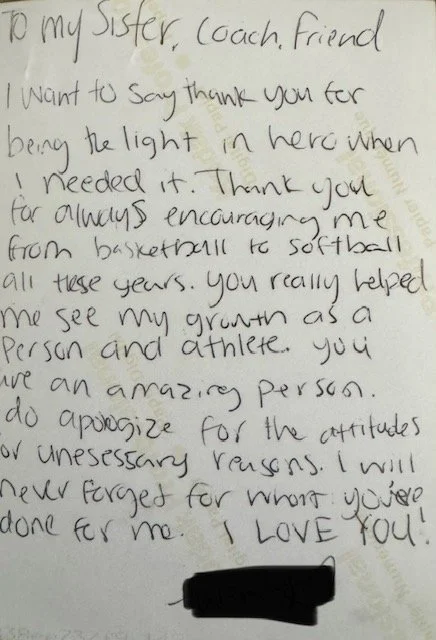 To my Sister, Coach, Friend
I want to say thank you for
being the light in hero when
I needed it. Thank you
for always encouraging me
from basketball to softball
all these years. you really helped
me see my growth as a
Person and athlete. you
are an amazing person.
do apologize for the attitudes
or unesessary reasons. I will
never forget for what you've
done for me. I LOVE YOU!